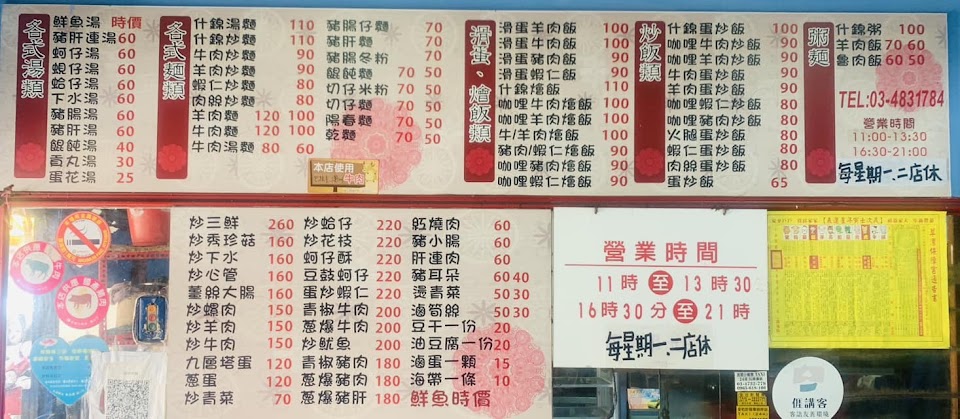 各式湯類
鮮魚湯 時價
豬肝連湯 60
蚵仔湯 60
蜆仔湯 60
蛤仔湯 60
下水湯 60
豬腸湯 60
豬肝湯 60
餛飩湯 40
貢丸湯 30
蛋花湯 25
各式麵類
什錦湯麵 110
什錦炒麵 110
牛肉炒麵 90
羊肉炒麵 90
蝦仁炒麵 80
肉絲炒麵 80
羊肉麵 120 100
牛肉麵 120 100
牛肉湯麵 80 60
豬腸仔麵 70
豬肝麵 70
豬腸冬粉 70
餛飩麵 70 50
切仔米粉 70 50
切仔麵 70 50
陽春麵 70 50
乾麵 70 50
本店使用
牛肉
滑蛋、燴飯類
滑蛋羊肉飯 100
滑蛋牛肉飯 100
滑蛋豬肉飯 90
滑蛋蝦仁飯 90
什錦燴飯 110
咖哩羊肉燴飯 100
咖哩牛肉燴飯 100
牛/羊肉燴飯 100
咖哩豬肉燴飯 90
咖哩蝦仁燴飯 90
炒飯類
什錦蛋炒飯 100
咖哩牛肉炒飯 90
咖哩羊肉炒飯 90
牛肉蛋炒飯 90
羊肉蛋炒飯 90
咖哩蝦仁炒飯 80
咖哩豬肉炒飯 80
火腿蛋炒飯 80
蝦仁蛋炒飯 80
肉絲蛋炒飯 80
蛋炒飯 65
粥麵
什錦粥 100
羊肉飯 70 60
魯肉飯 60 50
TEL:03-4831784
營業時間
11:00-13:30
16:30-21:00
每星期一.二店休
炒三鮮 260
炒秀珍菇 160
炒下水 160
炒心管 160
薑絲大腸 160
炒螺肉 150
炒羊肉 150
炒牛肉 150
九層塔蛋 120
蔥蛋 100
炒青菜 70
炒蛤仔 220
炒花枝 220
蚵仔酥 220
豆鼓蚵仔 220
蛋炒蝦仁 200
青椒牛肉 200
蔥爆牛肉 200
炒魷魚 200
青椒豬肉 180
蔥爆豬肉 180
蔥爆豬肝 180
豬小腸 60
肝連肉 60
豬耳朵 60 40
燙青菜 50 30
滷筍絲 50 30
豆干一份 20
油豆腐一份 20
滷蛋一顆 15
海帶一條 10
鮮魚時價
營業時間
11時至13時30
16時30分至21時
每星期一.二店休
𠊎講客
客語友善環境